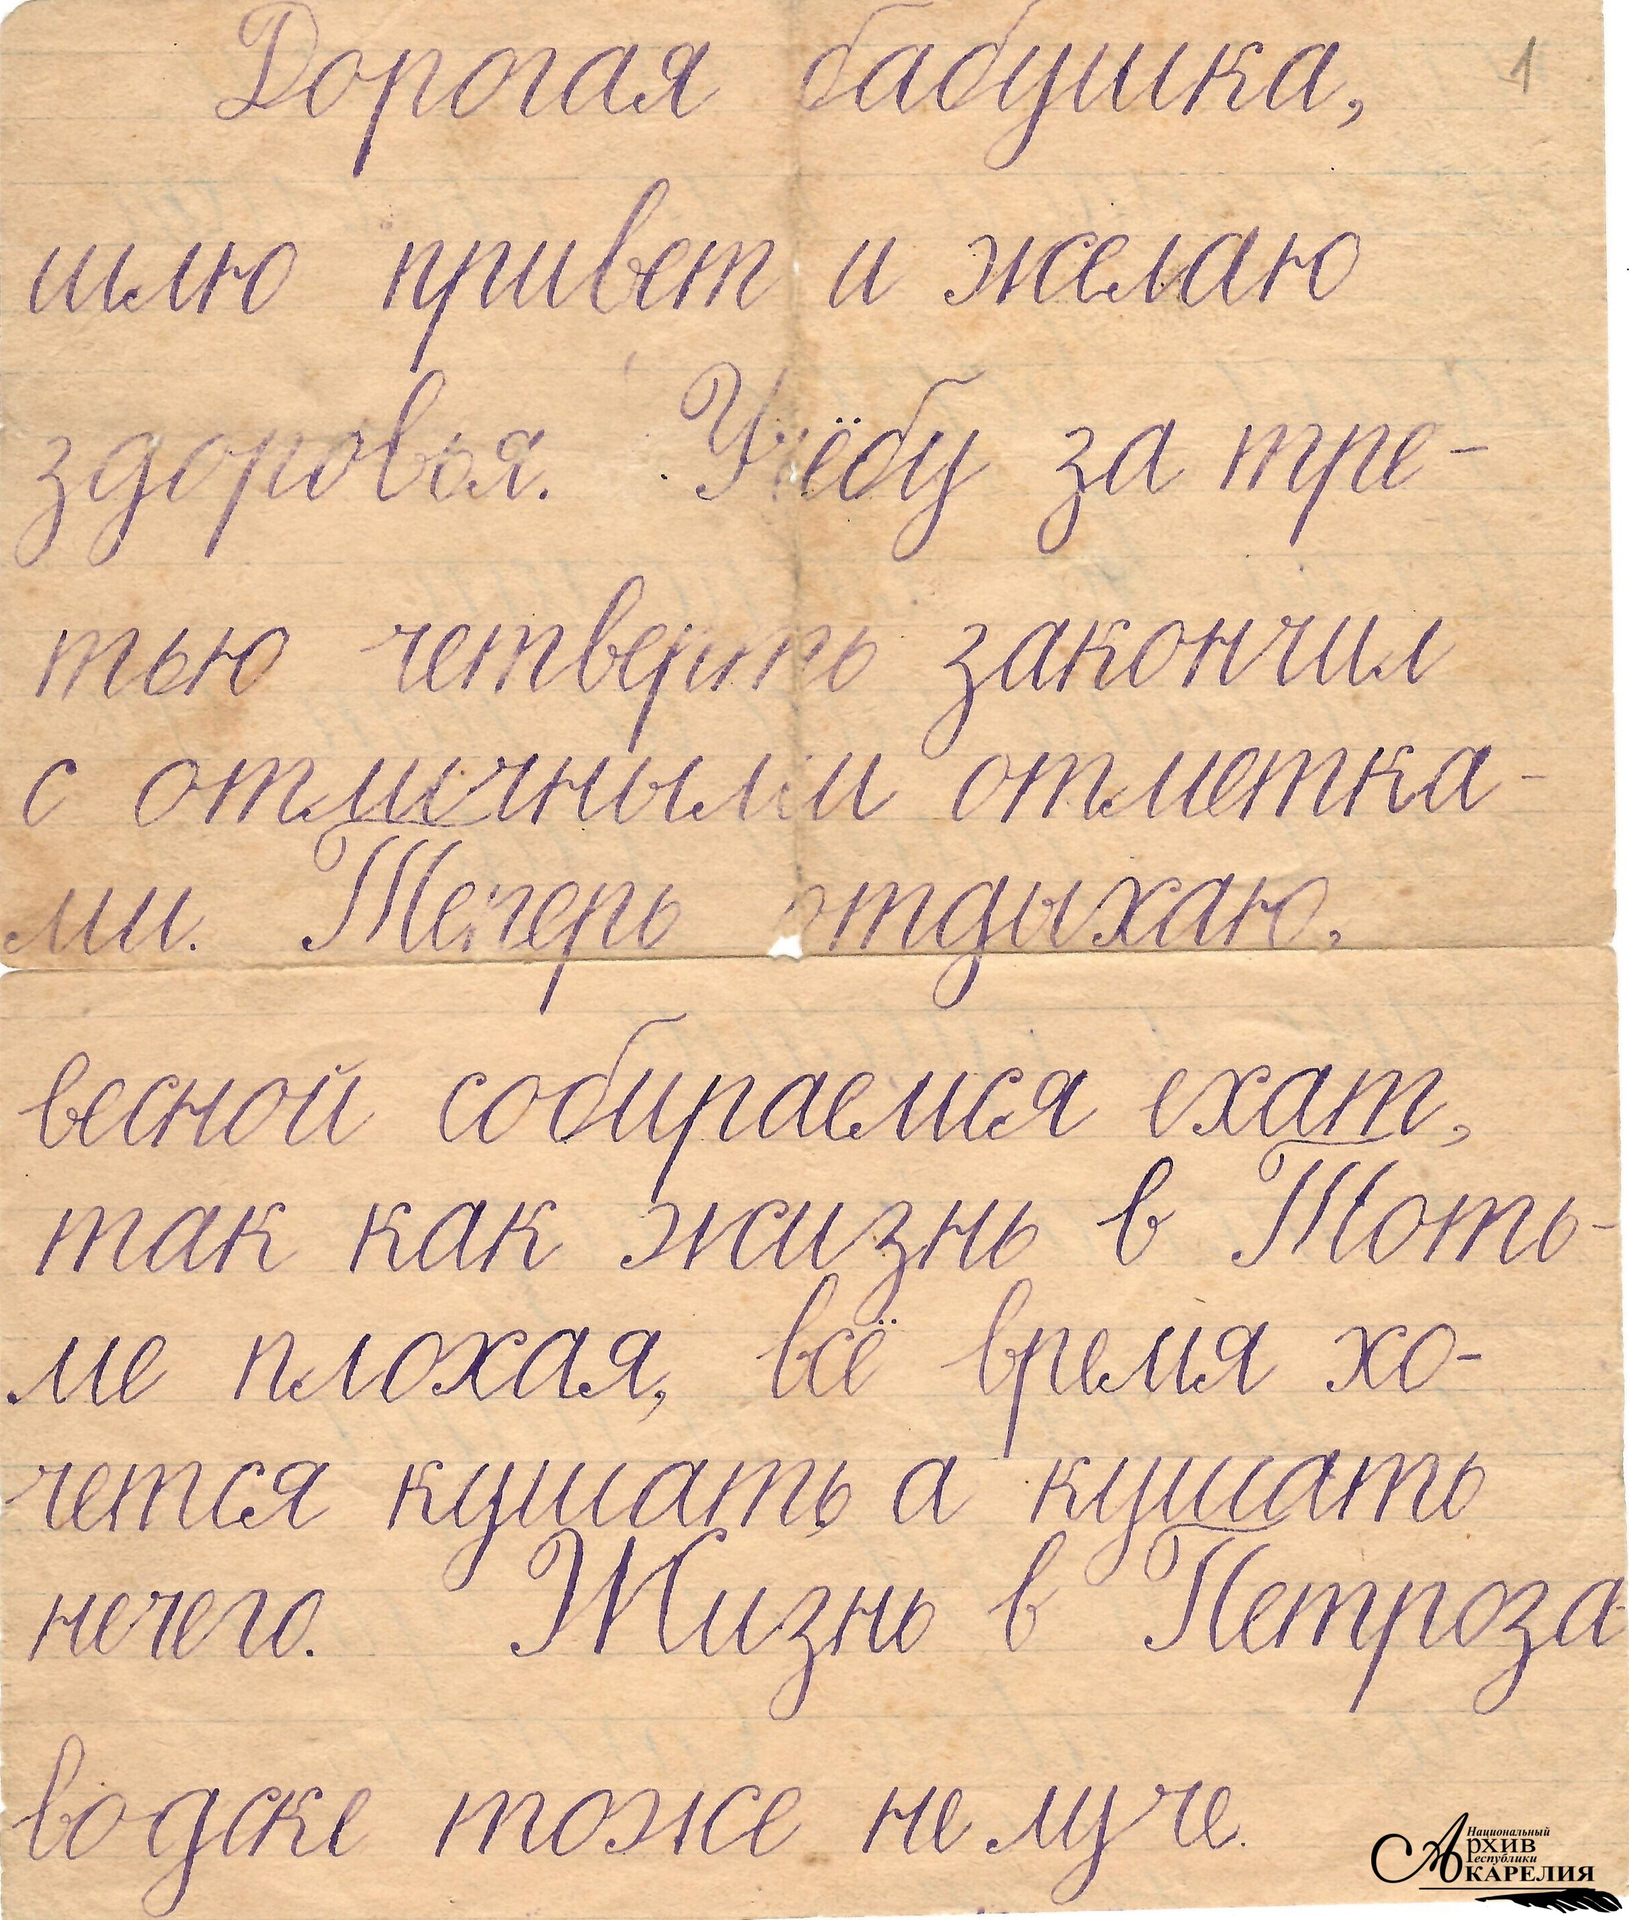 Дорогая бабушка,
1
шлю привет и желаю
здоровья. Учёбу за тре-
тью четверть закончил
с отличными отметка-
ми. Теперь отдыхаю,
весной собираемся ехат,
так как жизнь в Тоть-
ме плохая, всё время хо-
чется кушать, а кушать
нечего. Жизнь в Петроза-
водске тоже не луче.
Национальный
Архив
Республики
КАРЕЛИЯ